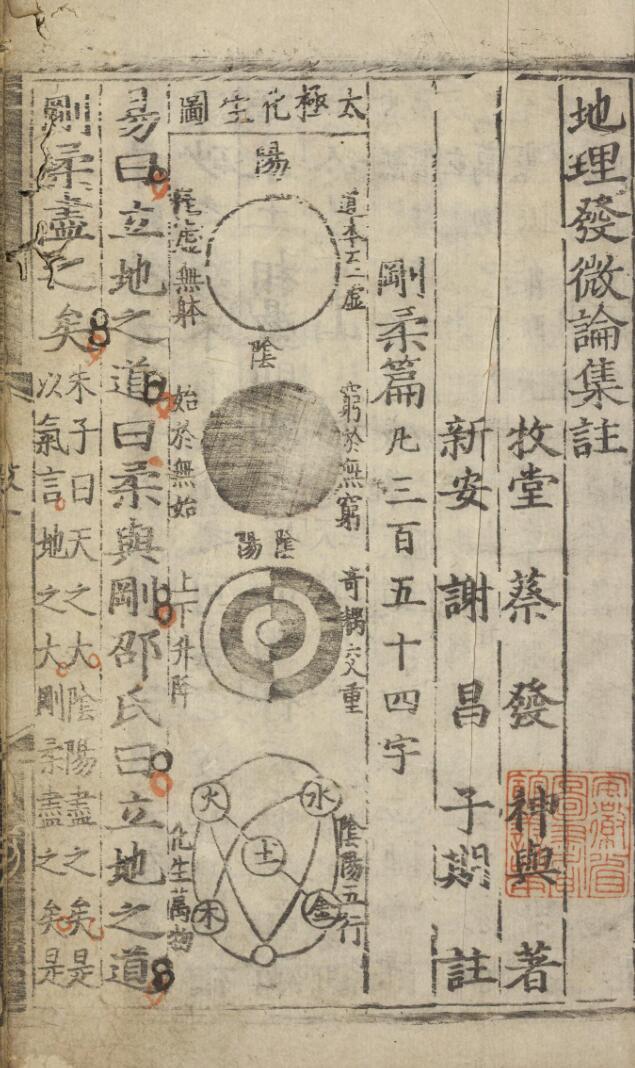 地理發微論集註
牧堂 蔡發 神與 著
新安 謝昌 子期 註
剛柔篇 凡三百五十四字
太極化生圖
陽
虛無躰
陰
窮於無窮
始於無始
陰陽
奇耦交重
上下升降
陰陽五行
水
火
土
金
木
化生萬物
易曰立地之道曰柔與剛邵氏曰立地之道
剛柔盡之矣
朱子曰天之大陰陽盡之矣是
以氣言地之大剛柔盡之矣是